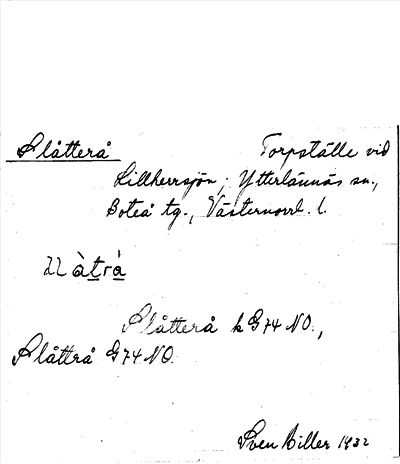 Slåtterå Torpställe vid
Lillherrsjön, Ytterlännäs sn.,
Boteå tg., Västernorrl. l.
Slåtterå k G74 NO.,
Slåttrå G74 NO.
Sven Hiller 1932